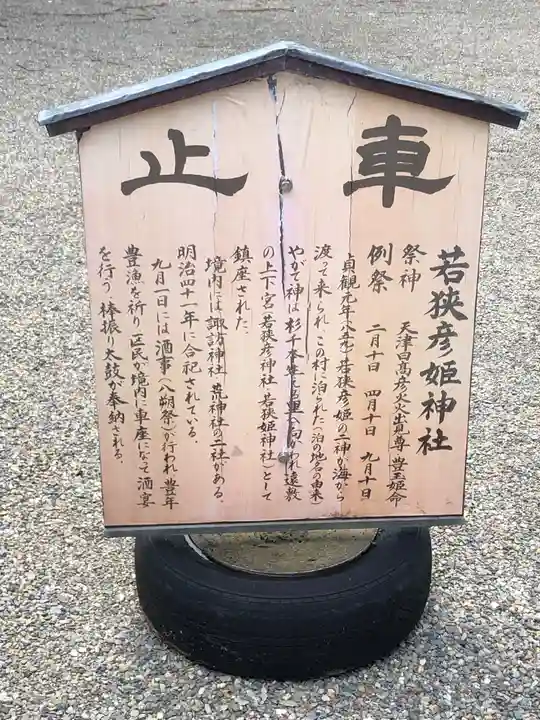 車止
若狭彦姫神社
祭神 天津日高彦火火出見尊 豊玉姫命
例祭 二月十日 四月十日 九月十日
貞観元年(八五九)若狭彦姫の二神が海から
渡って来られ、この村に泊られた(泊の地名の由来)
やがて神は杉千本生える里へ向かわれ遠敷
の上下宮(若狭彦神社 若狭姫神社)として
鎮座された。
境内には諏訪神社 荒神社の二社がある。
明治四十一年に合祀されている。
九月一日には酒事(八朔祭)が行われ豊年
豊漁を祈り区民が境内に車座になって酒宴
を行う。棒振り太鼓が奉納される。